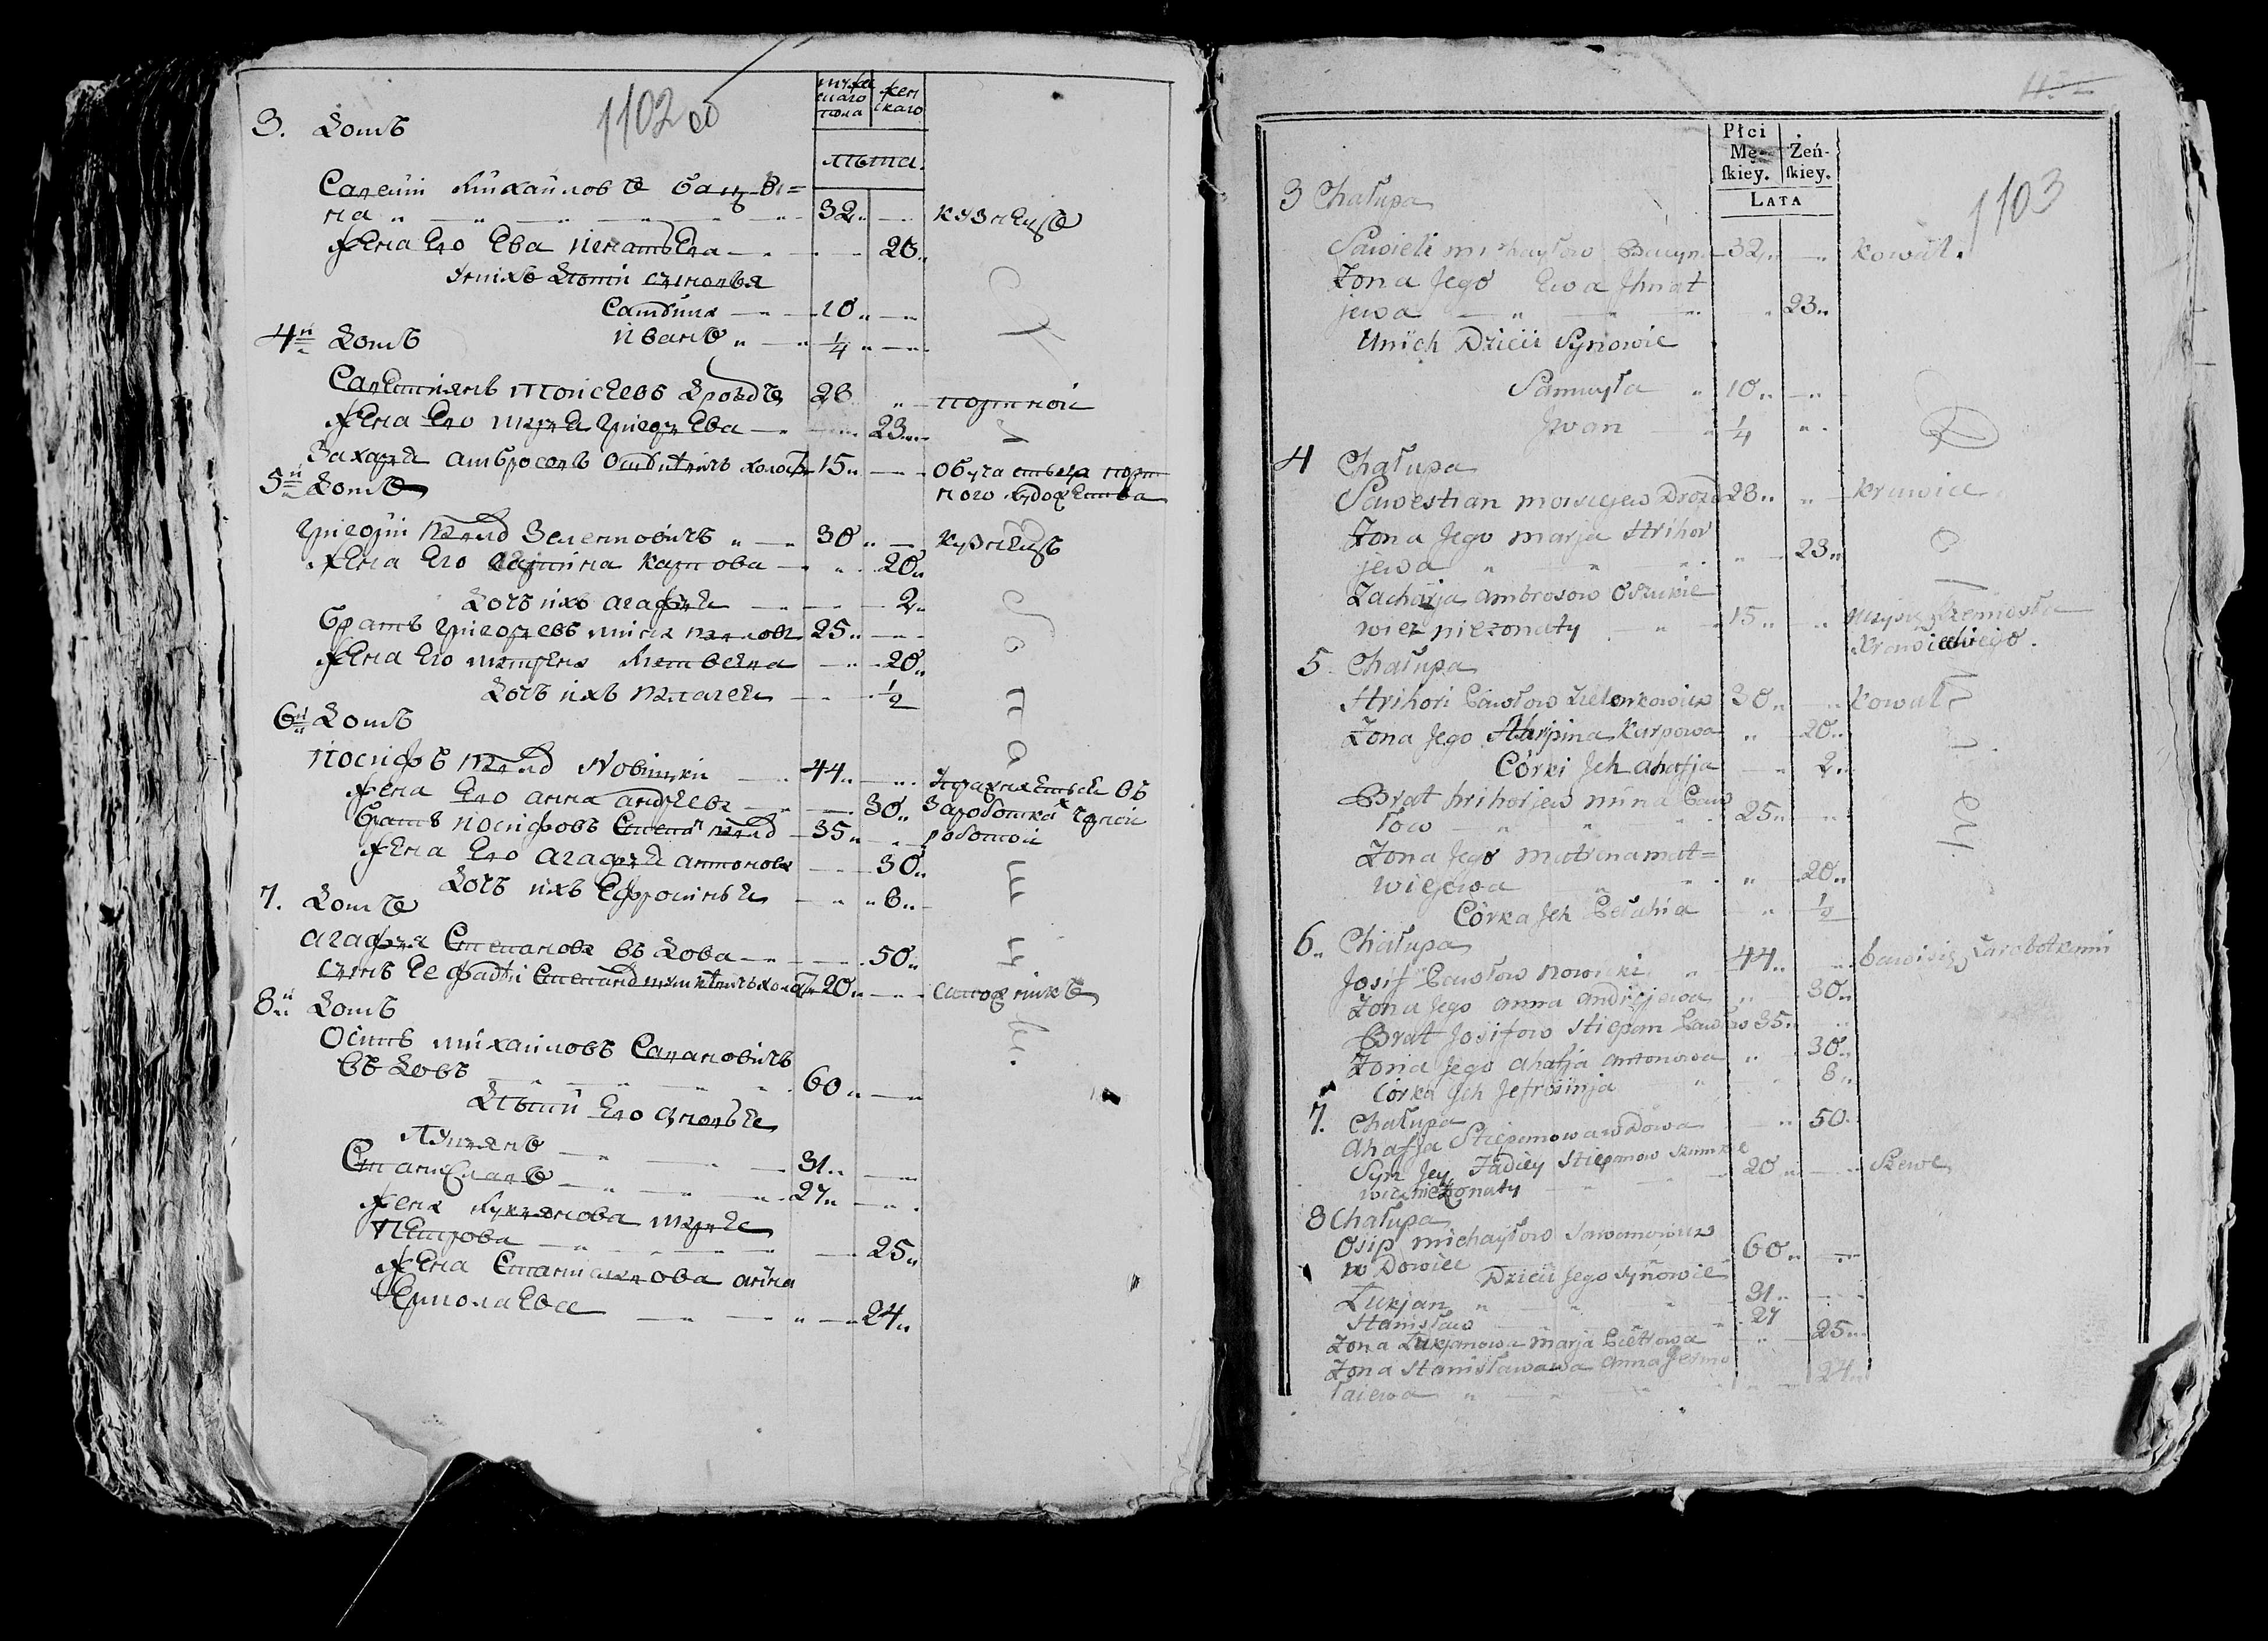 1102 об
мужескаго пола
женскаго
лѣта.
3. Домъ
Савелiй Михайловъ
на 32 кузнецъ
Жена Его Ева Игнатьева 23
У нихъ Дѣти сыновья
Самуила 10
Иванъ 1/4
4й Домъ
Савестiянъ Моисеевъ Дроздъ 28 портной
Жена Его Марья Григорьева 23
Захарья Амбросовъ холостъ 15 обучается порт
ного художества
5й Домъ
Григорiй Павловъ Зеленковичъ 30 кузнецъ
Жена Его Агрипина Карпова 20
Дочь ихъ Агафья 2
Братъ Григорьевъ Мина Павловъ 25
Жена Его Матрена Матвеева 20
Дочь ихъ Пелагея 1/2
6й Домъ
Иосифъ Павловъ Новицкiй 44 упражняется въ
Жена Его Анна Андреева 30 заработкахъ черной
Братъ Иосифовъ Степанъ Павловъ 35 работой
Жена Его Агафья Антонова 30
Дочь ихъ Ефросинья 8
7. Домъ
Агафья Степанова вдова 50
Сынъ Ее Фадей Степановъ холостъ 20 сапожникъ
8й Домъ
Осипъ Михайловъ Савановичъ
вдовъ 60
Дѣти Его сыновья
Лукьянъ 31
Станиславъ 27
Жена Лукьянова Марья
Петрова 25
Жена Станиславова Анна
Ермолаева 24
1103
Płci
Mę-
skiey.
Żeń-
skiey.
LATA
3 Chałupa
Sawieli Michayłow 32 kowal.
Żona Jego Ewa Jhnat
jewa 23
Unich Dzieci Synowie
Samuyła 10
Jwan 1/4
4 Chałupa
Sawestian Mowsiejew Drozd 28 krawiec
Żona Jego Marja Hrihor
jewa 23
Zacharja Ambrosow
wicz nieżonaty 15 rzemiosła
krawieckiego.
5 Chałupa
Hrihori Pawłow Zielenkowicz 30 kowal
Żona Jego Ahrypina Karpowa 20
Córki Jch Ahafja 2
Brat Hrihorjew Mina Paw
łow 25
Żona Jego Matrena Mat=
wiejewa 20
Córka Jch Pełahia 1/2
6 Chałupa
Josif Pawłow Nowicki 44 bawi się zarobotkami
Żona Jego Anna Andrejewa 30
Brat Josifow Stiepan Pawłow 35
Żona Jego Ahafja Antonowa 30
Córka Jch Jefrosinja 8
7. Chałupa
Ahafja Stiepanowa wdowa 50
Syn Jey Fadiey Stiepanow
wicz nieżonaty 20 Szewc
8 Chałupa
Osip Michayłow Sawanowicz
wdowiec 60
Dzieci Jego Synowie
Łukjan 31
Stanisław 27
Żona Łukjanowa Marja Pietrowa 25
Żona Stanisławawa Anna Jermo
łajewa 24